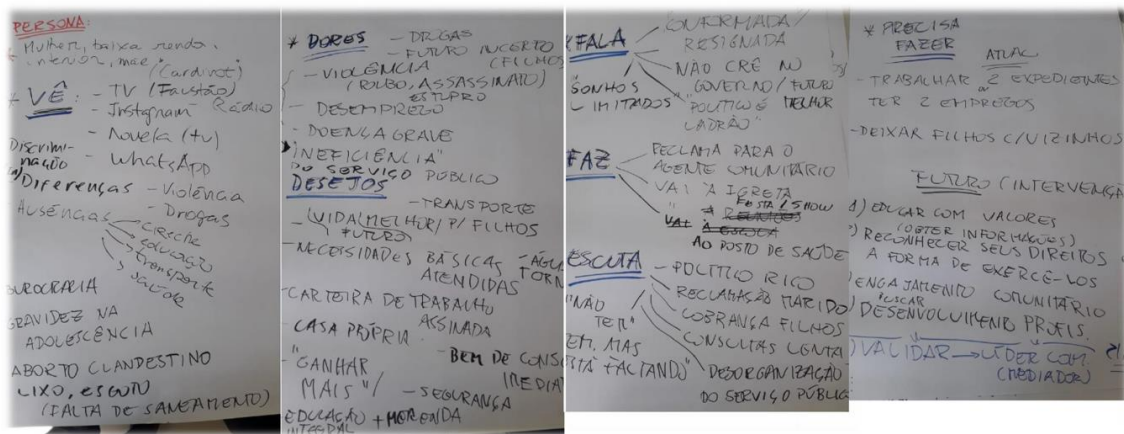 PERSONA:
* Mulher, baixa renda,
interior, mãe
("Cardivot")
* VÊ: - TV (Faustão)
- Instagram Rádio
- Novela (tv)
- WhatsApp
Discrimi-
nação
Diferenças - Violência
- Drogas
- Ausências
creche
educação
transporte
saúde
BUROCRACIA
GRAVIDEZ NA
ADOLESCÊNCIA
ABORTO CLANDESTINO
LIXO, ESGOTO
(FALTA DE SANEAMENTO)
* DORES - DROGAS
- FUTURO INCERTO
(FILHOS)
- VIOLÊNCIA
(ROUBO, ASSASSINATO)
ESTUPRO
- DESEMPREGO
- DOENÇA GRAVE
"INEFICIÊNCIA"
DO SERVIÇO PÚBLICO
DESEJOS
- TRANSPORTE
- VIDA MELHOR/P/ FILHOS
FUTURO
- NECESSIDADES BÁSICAS
ATENDIDAS
- CARTEIRA DE TRABALHO
ASSINADA
- CASA PRÓPRIA
- "GANHAR
MAIS"
- BEM DE CONS
- SEGURANÇA
EDUCAÇÃO + MERENDA
INTEGRAL
* FALA
CONFORMADA/
RESIGNADA
NÃO CRÊ NO
GOVERNO/FUTURO
MELHOR
"POLÍTICO É
LADRÃO"
SONHOS
LIMITADOS
FAZ
RECLAMA PARA O
AGENTE COMUNITÁRIO
VAI À IGREJA
" FESTA/SHOW
VAI
AO POSTO DE SAÚDE
ESCUTA
- POLÍTICO RICO
RECLAMAÇÃO MARIDO
COBRANÇA FILHOS
CONSULTAS LENTA
DESORGANIZAÇÃO
DO SERVIÇO PÚBLIC
"NÃO
TEM"
TEM, MAS
ESTÁ FALTANDO"
* PRECISA
FAZER
ATUAL
- TRABALHAR 2 EXPEDIENTES
ou
TER 2 EMPREGOS
- DEIXAR FILHOS C/VIZINHOS
"FUTURO (INTERVENÇÃ
1) EDUCAR COM VALORES
(OBTER INFORMAÇÕES)
RECONHECER SEUS DIREITOS
A FORMA DE EXERCÊ-LOS
ENGAJAMENTO COMUNITÁRIO
BUSCAR
DESENVOLVIMENTO PROFIS.
) VALIDAR → LÍDER COM.
(MEDIADOR)